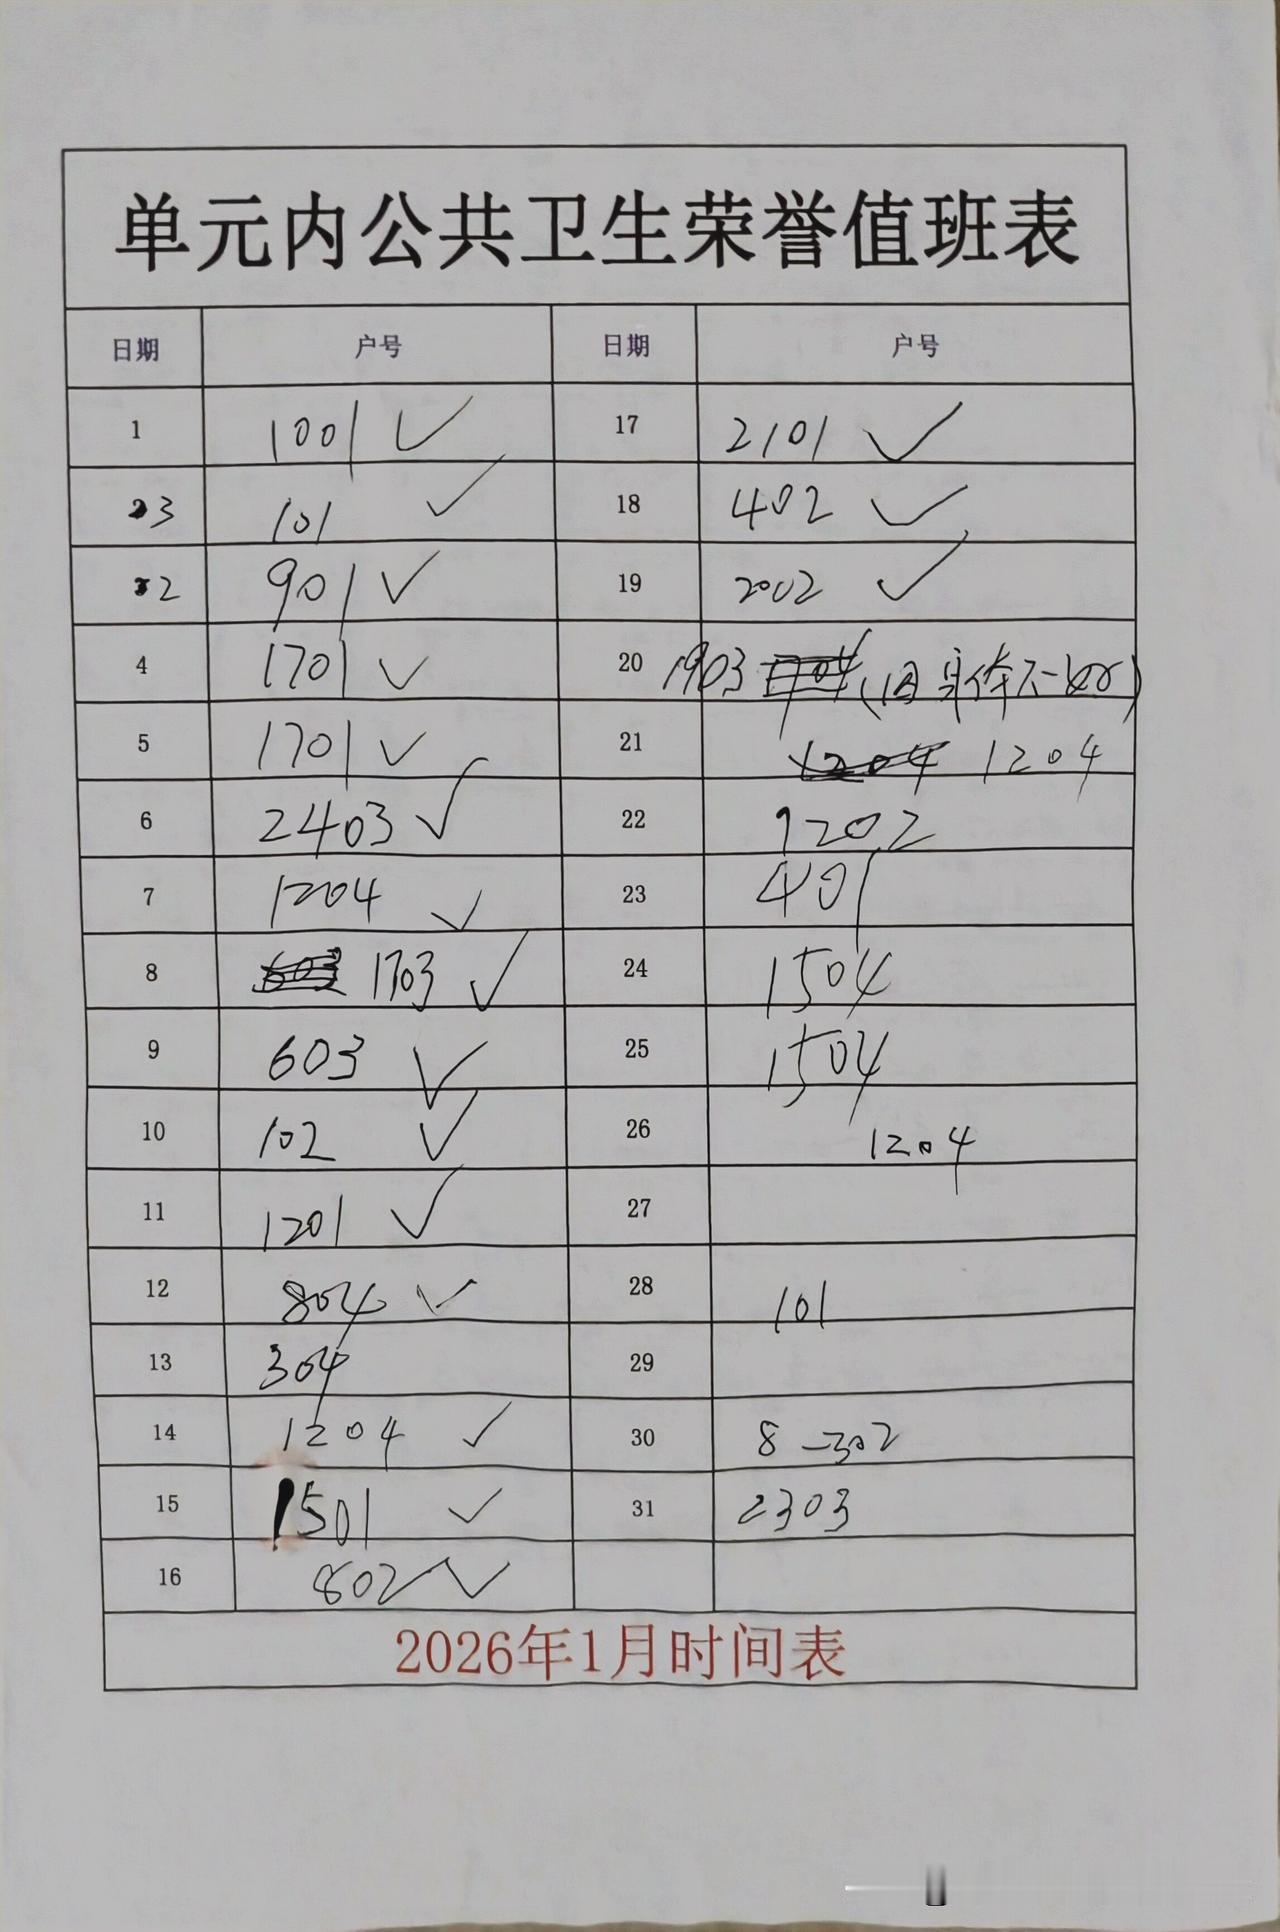 单元内公共卫生荣誉值班表
日期 户号 日期 户号
1 1001 ✓ 17 2101 ✓
3 101 ✓ 18 402 ✓
2 901 ✓ 19 2002 ✓
4 1701 ✓ 20 1903 (因身体不
5 1701 ✓ 21 1204 1204
6 2403 ✓ 22 1202
7 1204 ✓ 23 401
8 603 1703 ✓ 24 1504
9 603 ✓ 25 1504
10 102 ✓ 26 1204
11 1201 ✓ 27
12 804 ✓ 28 101
13 304 29
14 1204 ✓ 30 8-302
15 1501 ✓ 31 2303
16 802 ✓
2026年1月时间表